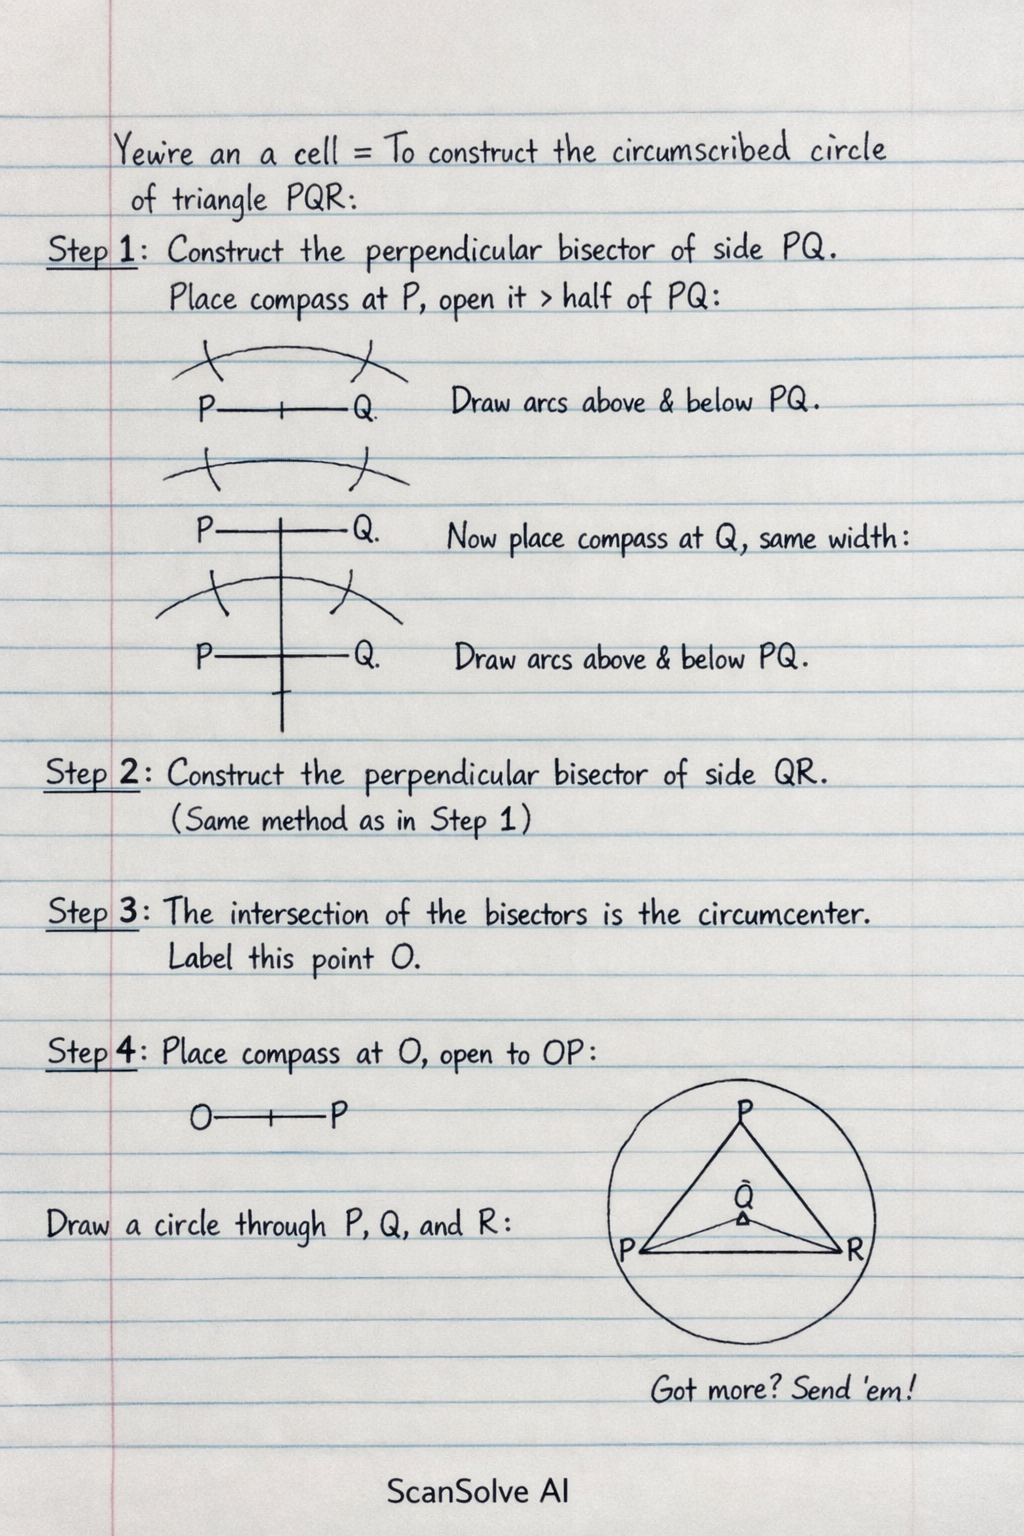 Yewre an a cell = To construct the circumscribed circle
of triangle PQR:
Step 1: Construct the perpendicular bisector of side PQ.
Place compass at P, open it > half of PQ:
P Q.
Draw arcs above & below PQ.
P Q.
Now place compass at Q, same width:
P Q.
Draw arcs above & below PQ.
Step 2: Construct the perpendicular bisector of side QR.
(Same method as in Step 1)
Step 3: The intersection of the bisectors is the circumcenter.
Label this point O.
Step 4: Place compass at O, open to OP:
O P
Draw a circle through P, Q, and R:
P
Q̄
P R
Got more? Send 'em!
ScanSolve AI